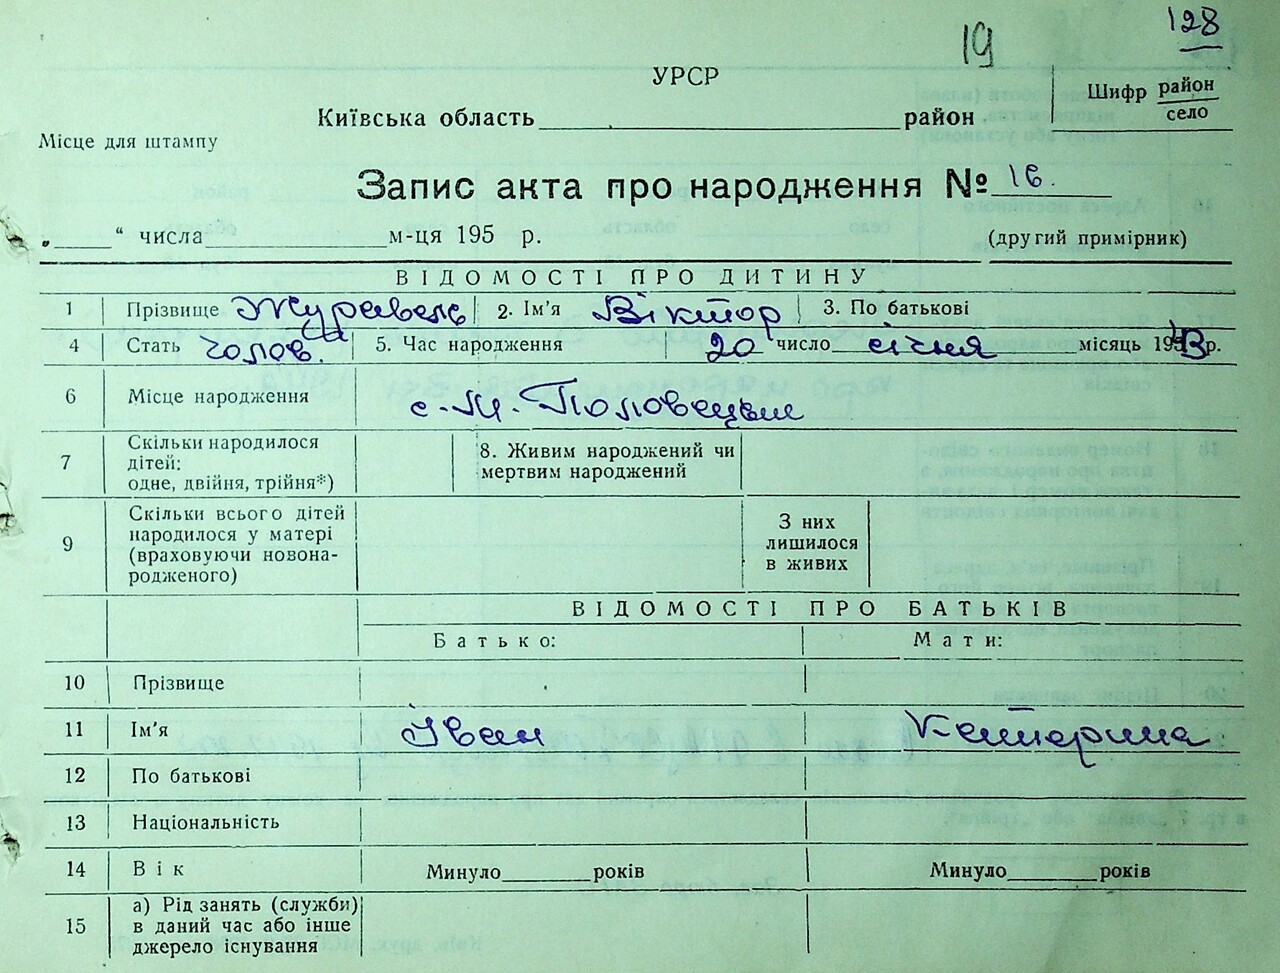 128
19
УРСР
Київська область район
Шифр район
село
Місце для штампу
Запис акта про народження № 16.
„ “ числа м-ця 195 р.
(другий примірник)
ВІДОМОСТІ ПРО ДИТИНУ
1 Прізвище Журавель 2. Ім'я Віктор 3. По батькові
4 Стать чолов. 5. Час народження 20 число січня місяць р.
6 Місце народження с. М. Половецьке
7 Скільки народилося дітей: одне, двійня, трійня*) 8. Живим народжений чи мертвим народжений
9 Скільки всього дітей народилося у матері (враховуючи новона-родженого) З них лишилося в живих
ВІДОМОСТІ ПРО БАТЬКІВ
Батько: Мати:
10 Прізвище
11 Ім'я Іван Катерина
12 По батькові
13 Національність
14 Вік Минуло років Минуло років
15 а) Рід занять (служби) в даний час або інше джерело існування